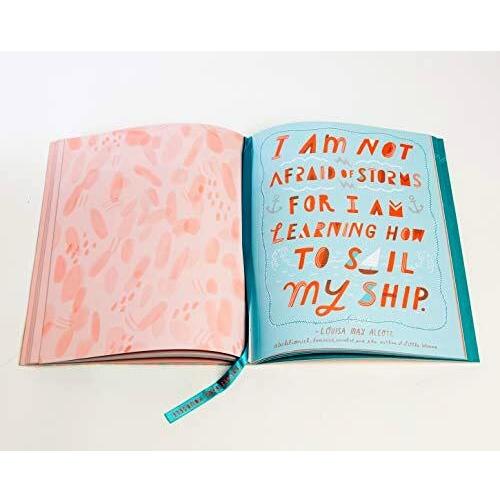 I AM NOT
AFRAID OF STORMS
FOR I AM
LEARNING HOW
TO SAIL
MY SHIP.
- LOUISA MAY ALCOTT
abolitionist, feminist, novelist and the author of Little Women